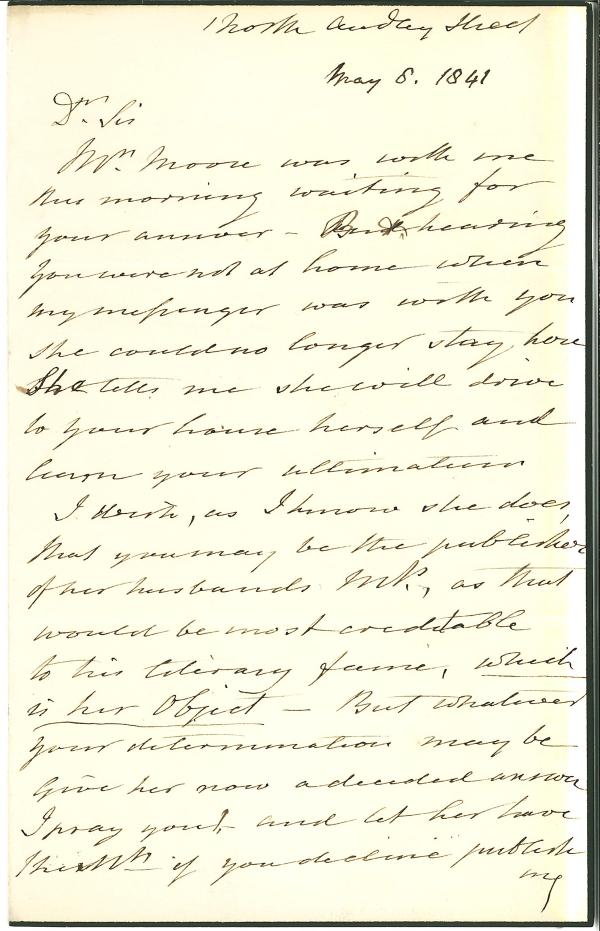 1 North Audley Street
May 6. 1841
Dr. Sir
Mrs. Moore was with me
this morning waiting for
your answer – But, hearing
you were not at home when
my messenger was with you
she could no longer stay here
She tells me she will drive
to your house herself and
learn your ultimatum
I wish, as I know she does,
that you may be the publisher
of her husbands MS., as that
would be most creditable
to his literary fame, which
is her Object – But whatever
your determination may be
Give her now a decided answer
I pray you, and let her have
the MS if you decline publish
ing